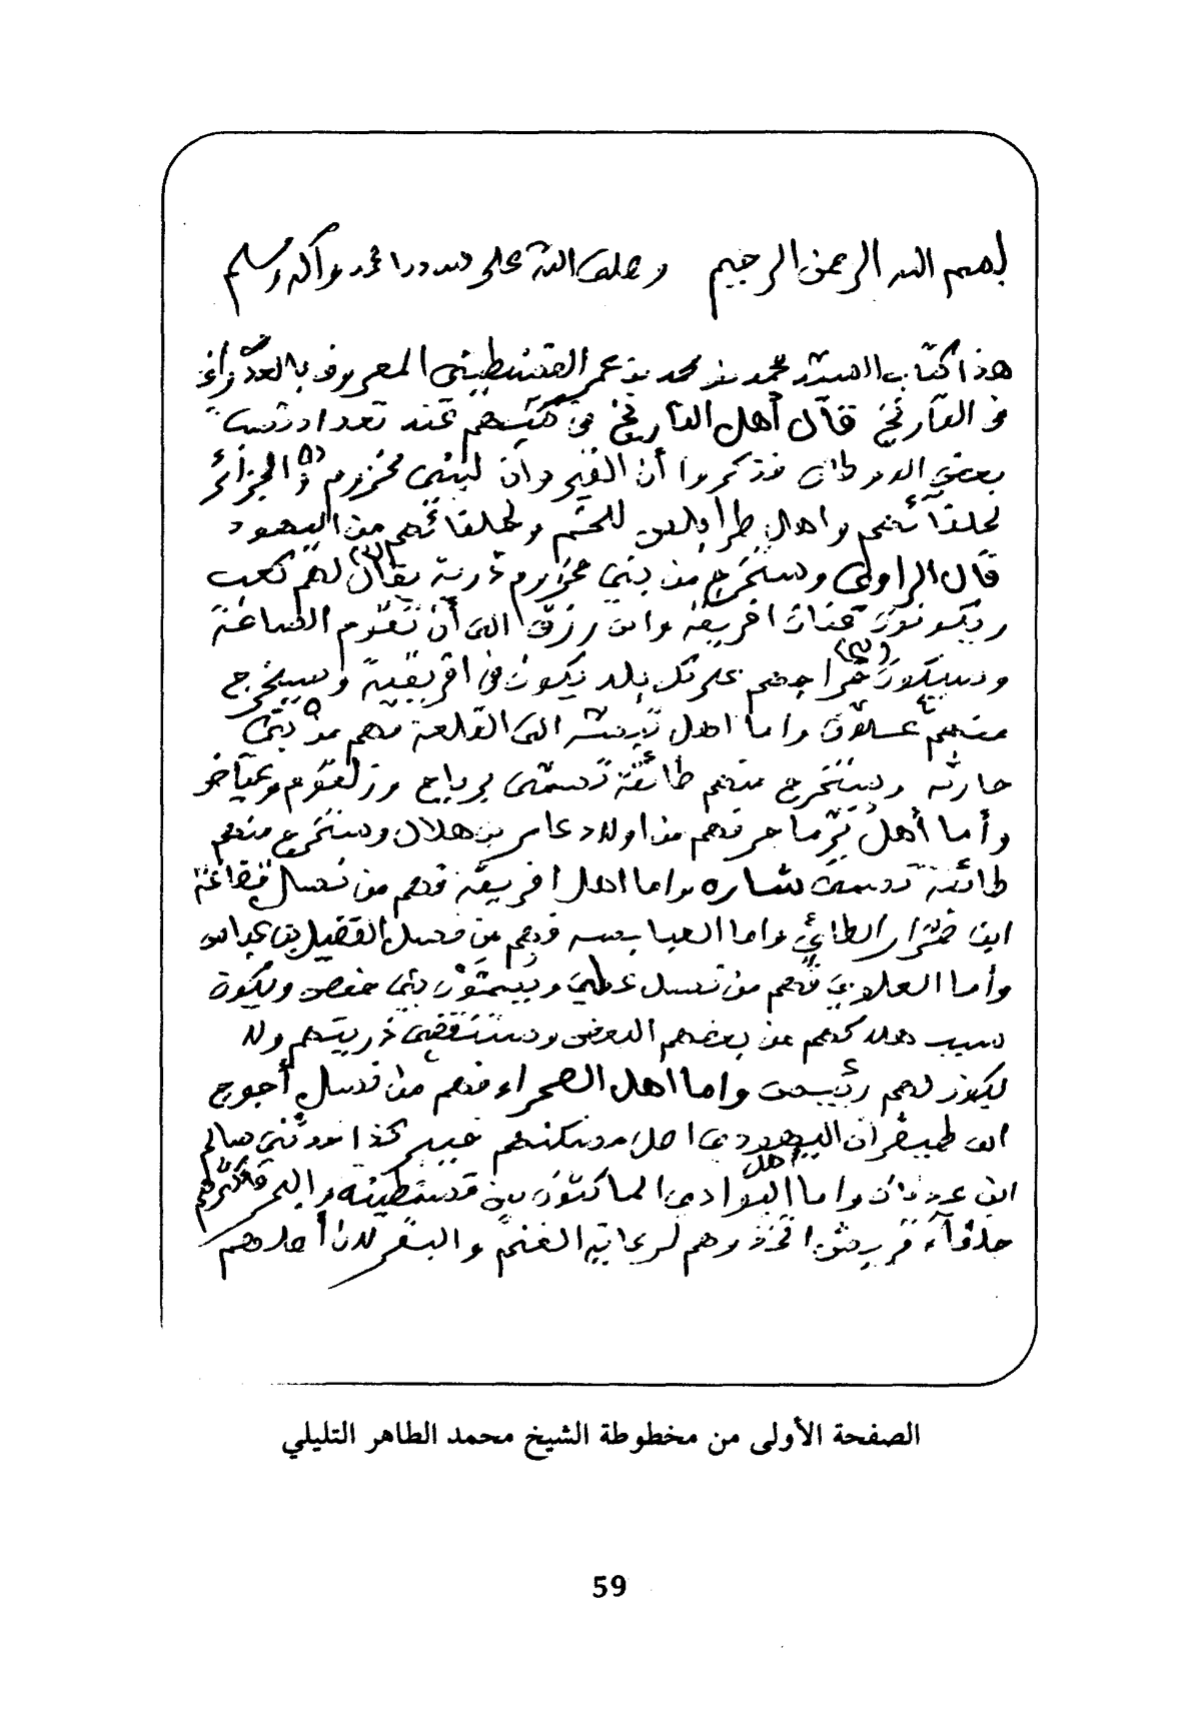 بسم الله الرحمن الرحيم وصلى الله على سيدنا محمد وآله وسلم
هذا كتاب السيد محمد بن محمد بن عمر القسنطيني المعروف بالعدواني
في التاريخ قال أهل التاريخ في كتبهم عند تعداد نسب
بعض الاوطان فذكروا أن القيروان لبني مخزوم و الجزائر
لحلفائهم واهل طرابلس للخم ولحلفائهم من اليهود
قال الراوي وستخرج من بني مخزوم ذرية يقال لهم كعب
ويكونون افريقة وابن رزق الى أن تقوم الساعة
وسيكون على كل بلد يكون في افريقية وسيخرج
منهم واما اهل تبسة الى القلعة فهم من بني
حارثة وستخرج منهم طائفة تسمى برباح
وأما أهل فهم من اولاد عامر بن هلال وستخرج منهم
طائفة تسمى شاره واما اهل افريقة فهم من نسل
ابن ضرار الطائي واما العبابسه فهم من نسل الفضيل بن عباس
وأما العلاوين فهم من نسل عطية ويسمون بني حفص ويكون
سبب هلاكهم من بعضهم البعض وستنقضي ذريتهم ولا
يكون لهم رئيس واما أهل الصحراء فهم من نسل أجوج
ابن اليهودي اصل مسكنهم خيبر كذا حدثني صالح
ابن واما أهل البوادي الماكثون بين قسنطينه والبحر فأكثرهم
حلفاء قريش اتخذوهم لرعاية الغنم والبقر لان أصلهم
الصفحة الأولى من مخطوطة الشيخ محمد الطاهر التليلي
59